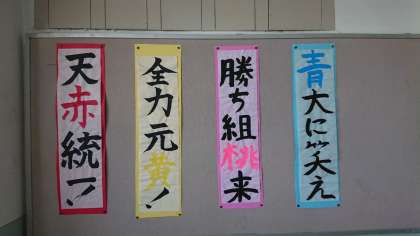 天赤統一!
全力元黄!
勝ち組桃来
青大に笑え